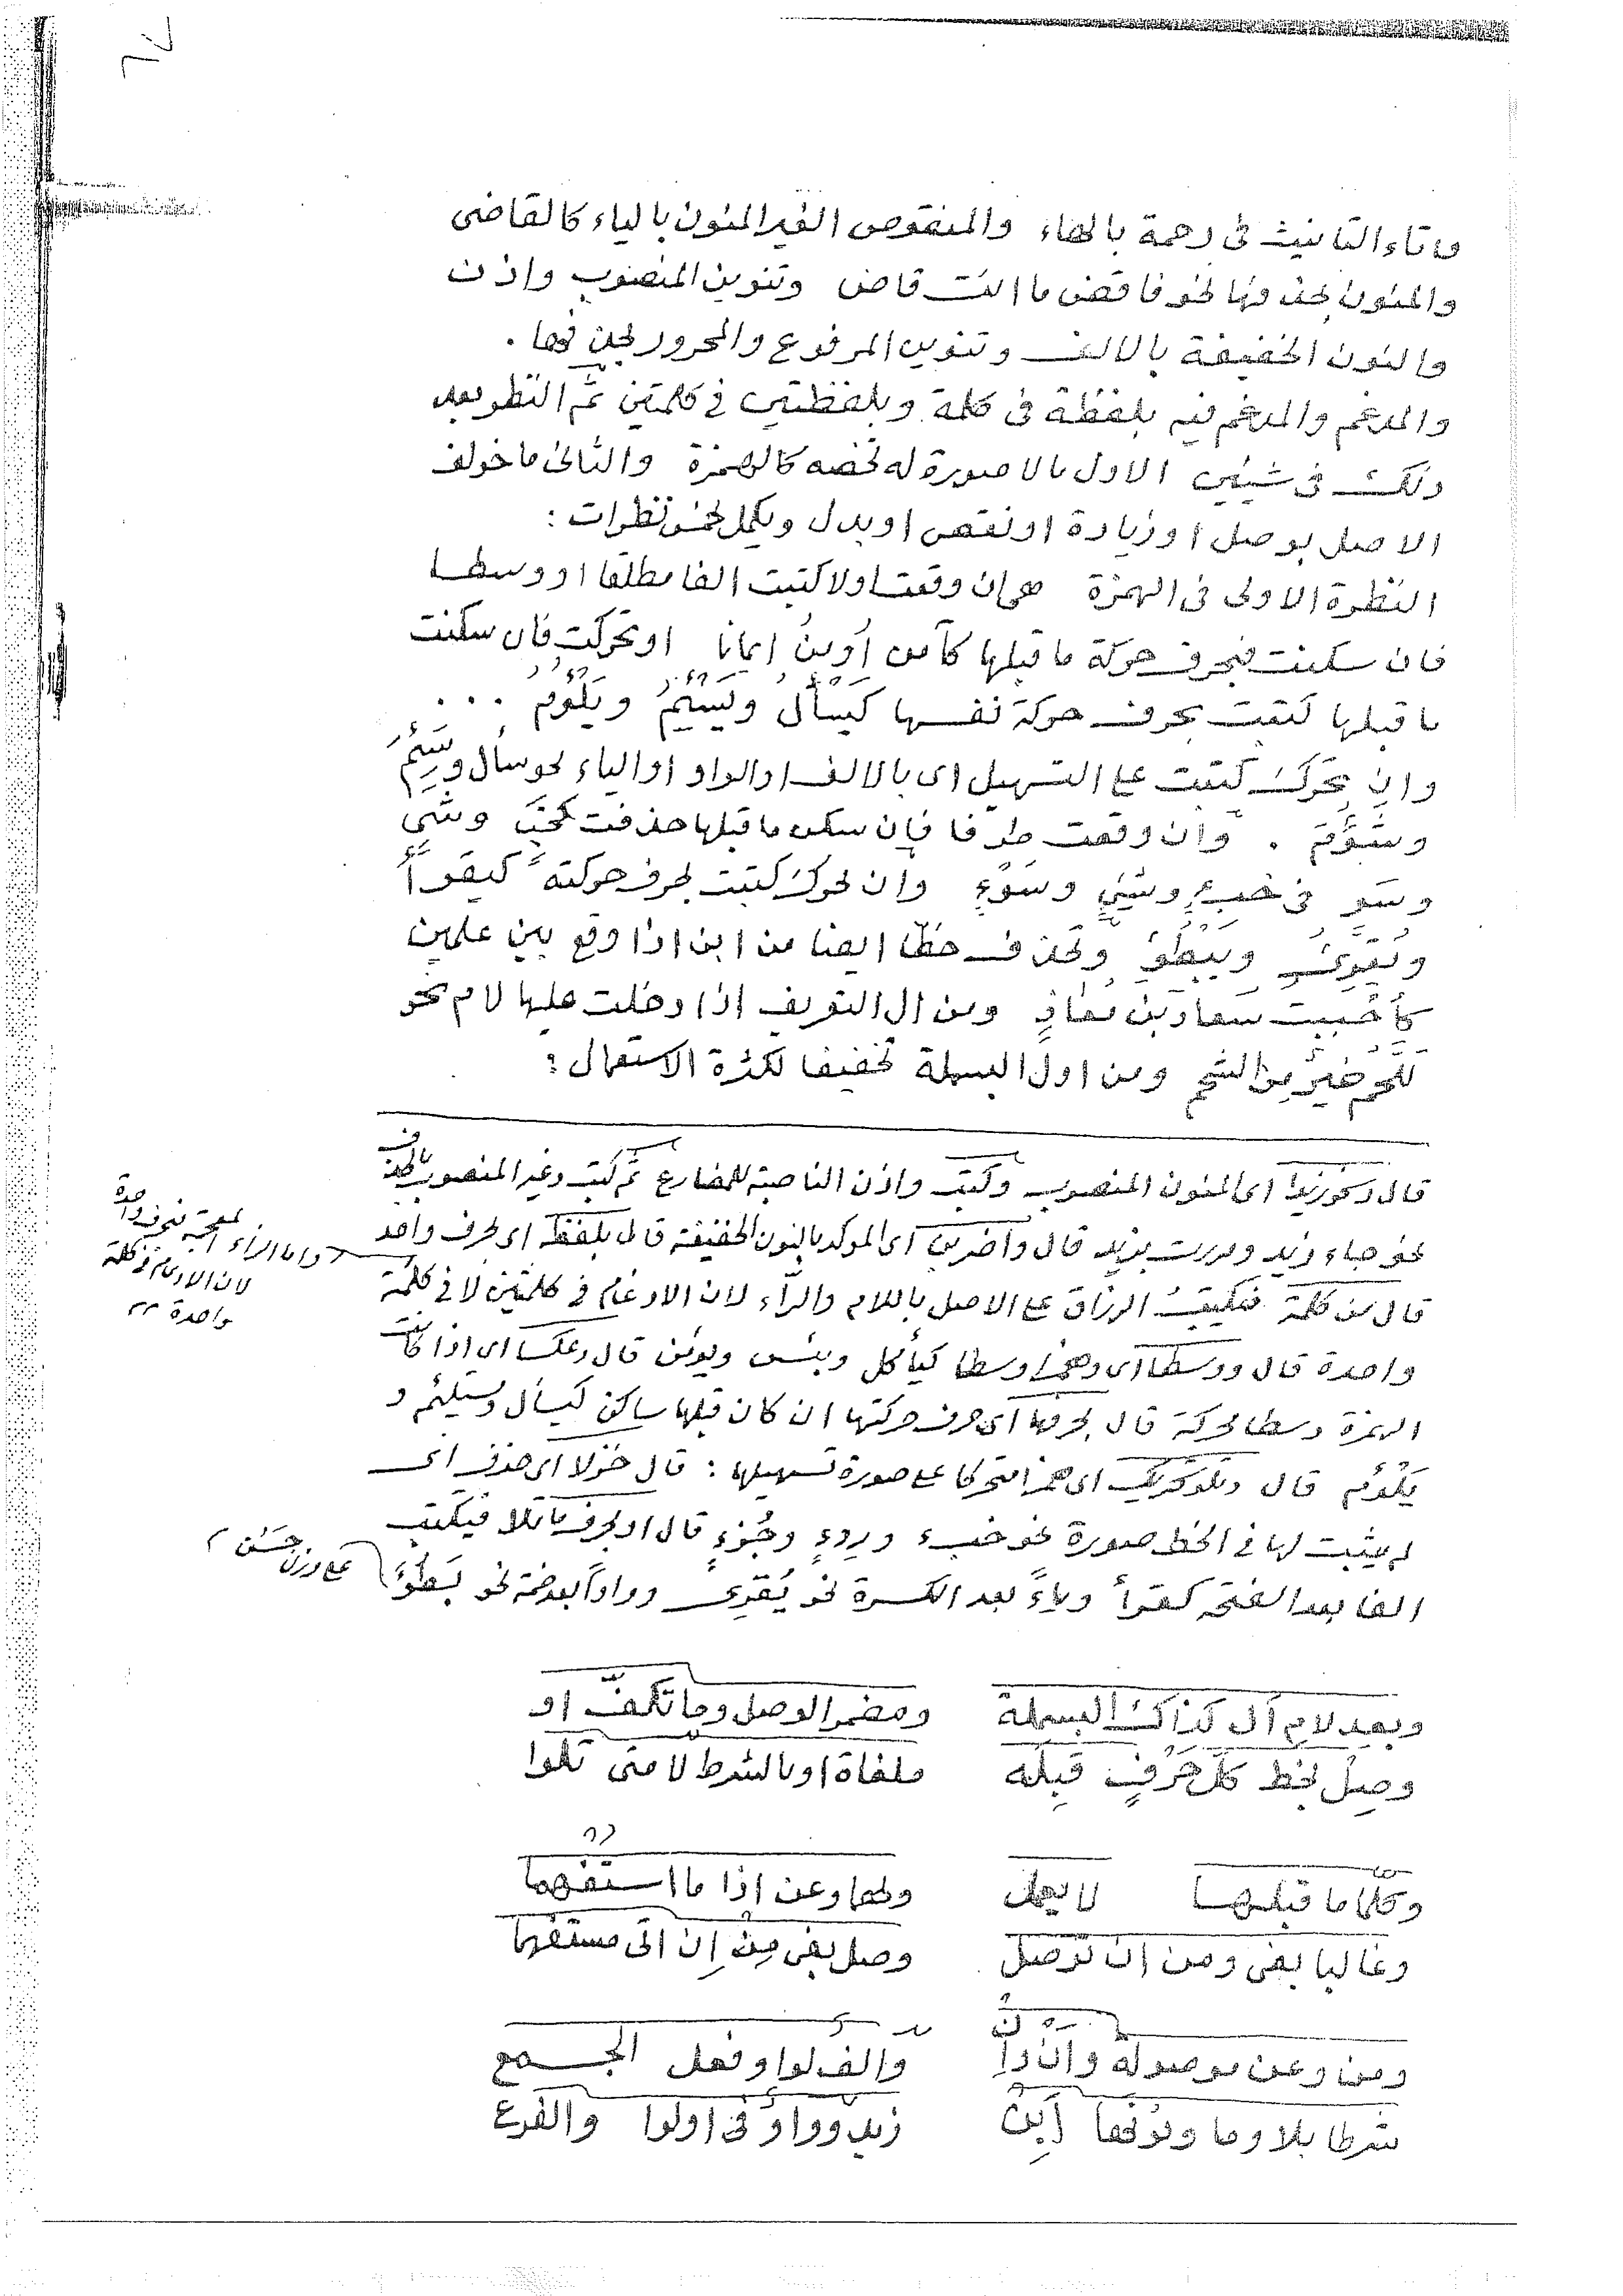 وتاء التانيث فى رحمة بالهاء والمنقوص الغير المنون بالياء كالقاضى
والمنون بحذفها نحو فاقض ما انت قاض وتنوين المنصوب واذن
والنون الخفيفة بالالف وتنوين المرفوع والمجرور بحذفها .
والمدغم والمدغم فيه بلفظة فى كلمة وبلفظتين فى كلمتين ثم النظر بعد
ذلك فى شيئين الاول مالا صورة له تخصه كالهمزة والثانى ما خولف
الاصل بوصل او زيادة او نقص او بدل ويكمل بخمس نظرات :
النظرة الاولى فى الهمزة هى ان وقعت اولا كتبت الفا مطلقا او وسطا
فان سكنت فبحرف حركة ما قبلها كآمن أومن ايمانا او تحركت فان سكنت
ما قبلها كتبت بحرف حركة نفسها كَيَسْأَلُ ويُسْئِمُ ويَلْؤُمُ . . .
وان تحرك كتبت على التسهيل اى بالالف او الواو او الياء نحو سأل وسَئِمَ
وشَؤُمَ . وان وقعت طرفا فإن سكن ما قبلها حذفت كخب وشى
وسو فى خبءٍ وشيءٍ وسوءٍ وان تحرك كتبت بحرف حركته كيقرأ
ويُقْرِئُ ويَبْطُؤُ وتحذف خطا ايضا من ابن اذا وقع بين علمين
كأحببت سعاد بن معاذٍ ومن ال التعريف اذا دخلت عليها لام نحو
للَّحم خيرٌ من الشحم ومن اول البسملة تخفيفا لكثرة الاستعمال :
قال ونحو زيدا اى المنون المنصوب وكتب واذن الناصبة للمضارع ثم كتب وغير المنصوب بالحذف
نحو جاء زيد ومررت بزيد قال واضربن اى الموكد بالنون الخفيفة قال بلفظة اى بحرف واحد
واما الراء المعجمة فبحرف واحدة
لان الادغام فى كلمة
واحدة
قال من كلمة فيكتب الرزاق على الاصل باللام والرّاء لان الادغام فى كلمتين لا فى كلمة
واحدة قال ووسطا اى وهمزا وسطا كيأكل وبئس ويؤمن قال وعكسا اى اذا كانت
الهمزة وسطا محركة قال بحرفها اى حرف حركتها ان كان قبلها ساكن كيسأل ويسئم و
يَلْؤُم قال وتلو تحريك اى همزا متحركا على صورة تسهيلها : قال خزلا اى حذف اى
لم يثبت لها فى الخط صورة نحو خبء وردءٍ وجُزءٍ قال او بحرف ما تلا فيكتب
الفا بعد الفتحة كقرأ وياءً بعد الكسرة نحو يُقرئ وواوا بعد ضمة نحو بَطُؤَ
على وزن حَسُن
وبعد لام ال كذاك البسملة ومضمر الوصل وما تكفّ او
وصِلْ بخط كلّ حرفٍ قبله ملغاة او بالشرط لا متى تلوا
وكلما ما قبلها لا يعمل ولهما وعن اذا ما استفهما
وغالبا بفى ومن ان توصل وصل بفى مِن إن اتى مستفهما
ومن وعن موصولة وان والف لوا وفعل الجمع
شرطا بلا وما ونونها أَبِنْ زيد وواو فى اولوا والفرع